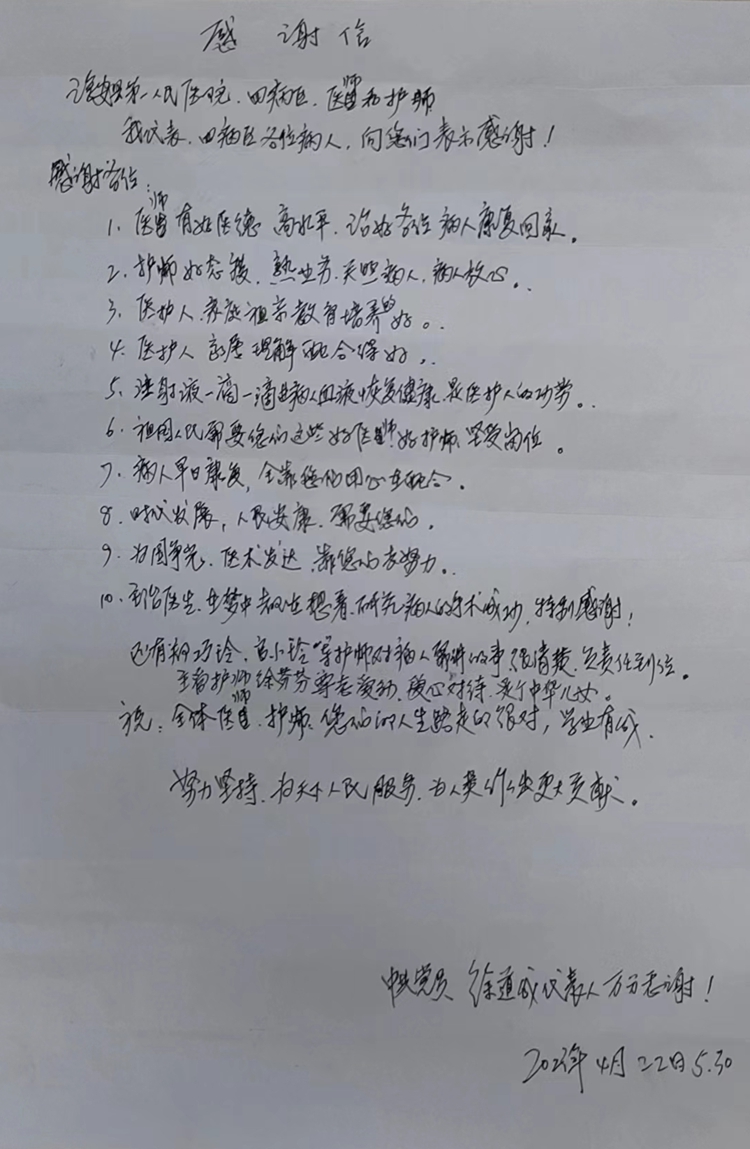 感谢信
第一人民医院.四病区.医师和护师
我代表.四病区各位病人,向您们表示感谢!
感谢各位:
1、医师有好医德 高水平.治好各位病人康复回家。
2、护师好态度.热.关照病人,病人放心。.
3、医护人.家庭祖宗教育培养的好。.
4、医护人 理解配合得好..
5、注射液一滴一滴病人血液恢复健康.是医护人的功劳。.
6、祖国人民需要您们这些好医师好护师.坚守岗位。
7、病人早日康复,全靠您们用心配合.
8、时代发展,人民安康.需要您们.
9、为国争光.医术发达.靠您们努力..
10、医生.梦中都在想着.研究病人的手术成功,特别感谢!
还有玲.小玲等护师对病人解释的事很清楚.负责任到位。
护师徐芳芬.心对待.中华儿女。
祝:全体医师.护师.您们的人生路走的很对,学业有成.
努力坚持.为人民服务.为人类作出更大贡献。
中共党员 徐道成代表人万分感谢!
4月22日5.30